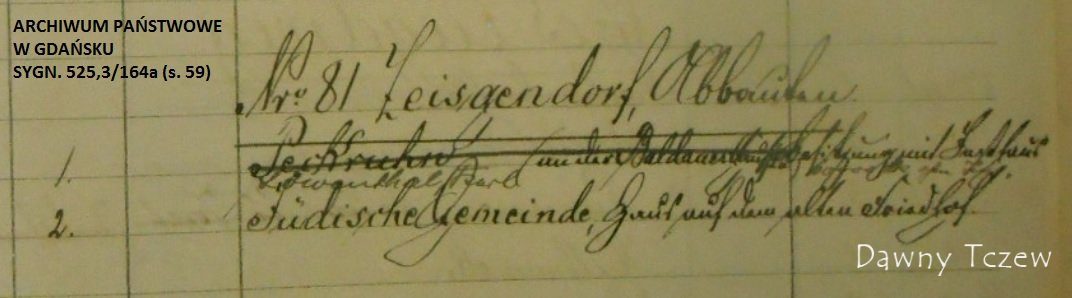 ARCHIWUM PAŃSTWOWE
W GDAŃSKU
SYGN. 525,3/164a (s. 59)
Nro 81 Zeisgendorf, Abbauten.
1. an der Besitzung mit Gasthaus
Löwenthal
2. Jüdische Gemeinde, Haus auf dem alten Friedhof.
Dawny Tczew